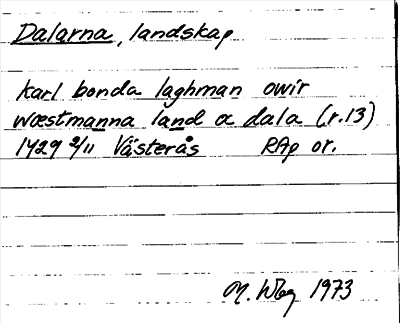 Dalarna, landskap
karl bonda laghman owir
wæstmanna land oc dala (r.13)
1429 2/11 Västerås RAp or.
1973